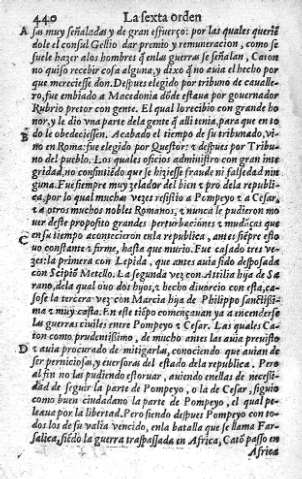 440 La sexta orden
A sas muy señaladas y de gran esfuerço: por las quales queriẽ
dole el consul Gellio dar premio y remuneracion, como se
suele hazer alos hombres q̃ enlas guerras se señalan, Caton
no quiso recebir cosa alguna, y dixo q̃ no auia el hecho por
que mereciesse don. Despues elegido por tribuno de cauallе-
ro, fue embiado a Macedonia dõde estaua por gouernador
Rubrio pretor con gente. El qual lo recibio con grande ho
nor, y le dio vna parte dela gente q̃ alli tenia, para que en to
do le obedeciessen. Acabado el tiempo de su tribunado, vi-
B no en Roma: fue elegido por Questor: z despues por Tribu-
no del pueblo. Los quales oficios administro con gran inte
gridad, no consintiẽdo que se hiziesse fraude ni falsedad nin
guna. Fue siempre muy zelador del bien z pro dela republi-
ca, por lo qual muchas vezes resistio a Pompeyo z a Cesar,
z a otros muchos nobles Romanos, z nunca le pudieron mo
uer deste proposito grandes perturbaciones z mudãças que
C en su tiempo acontecieron enla republica, antes siepre estu
uo constante z firme, hasta que murio. Fue casado tres ve-
zes: la primera con Lepida, que antes auia sido desposada
con Scipiõ Metello. La segunda vez con Attilia hija de Sa
rano, dela qual ouo dos hijos, z hecho diuorcio con esta, ca-
sose la tercera vez con Marcia hija de Philippo sanctissi-
ma z muy casta. En este tiẽpo començauan ya a encenderse
las guerras ciuiles entre Pompeyo z Cesar. Las quales Ca-
ton como prudentissimo, de mucho antes las auia preuisto
D z auia procurado de mitigarlas, conociendo que auian de
ser perniciosas, y euersoras del estado dela republica. Pero
al fin no las pudiendo estoruar, auiendo enellas de necessi-
dad de seguir la parte de Pompeyo, o la de Cesar, siguio
como buen ciudadano la parte de Pompeyo, el qual pe-
leaua por la libertad. Pero siendo despues Pompeyo con to-
dos los de su valia vencido, enla batalla que se llama Far-
salica, siẽdo la guerra traspassada en Africa, Catõ passo en
Africa